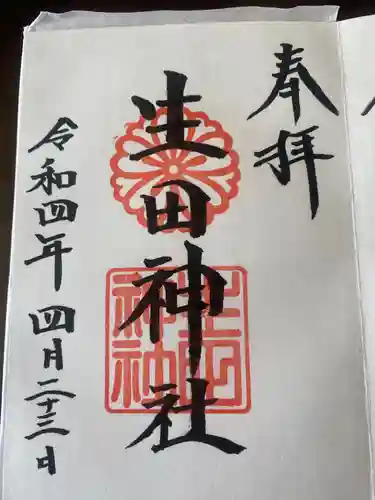 奉拝
生田神社
令和四年 四月二十三日